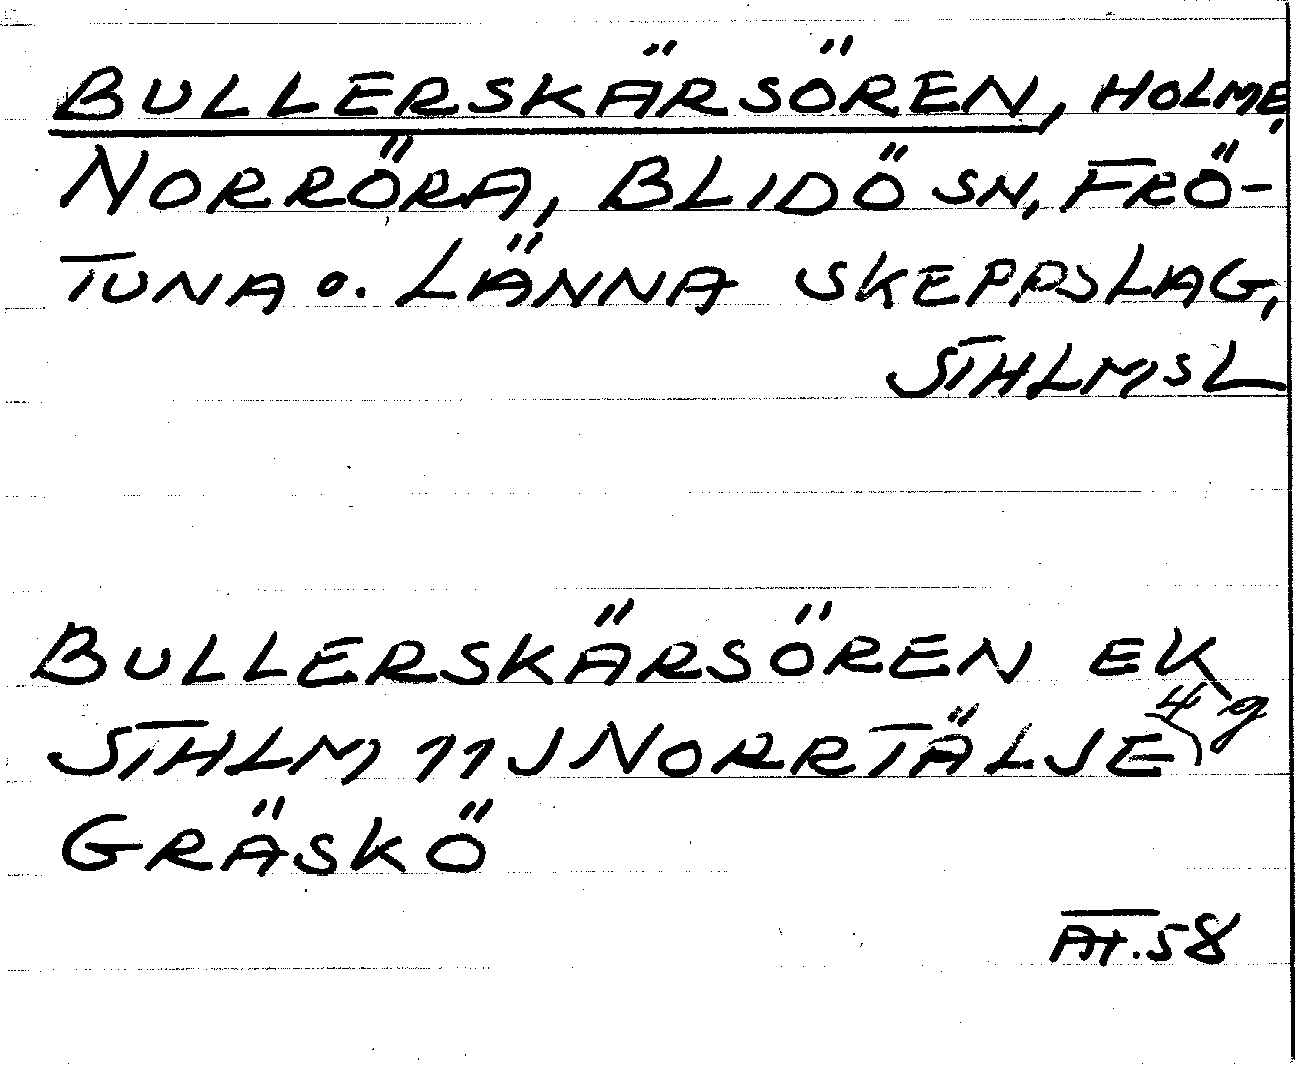 BULLERSKÄRSÖREN, HOLME,
NORRÖRA, BLIDÖ SN, FRÖ-
TUNA O. LÄNNA SKEPPSLAG,
STHLMSL
BULLERSKÄRSÖREN EK
STHLM 11 J NORRTÄLJE 4 g
GRÄSKÖ
58